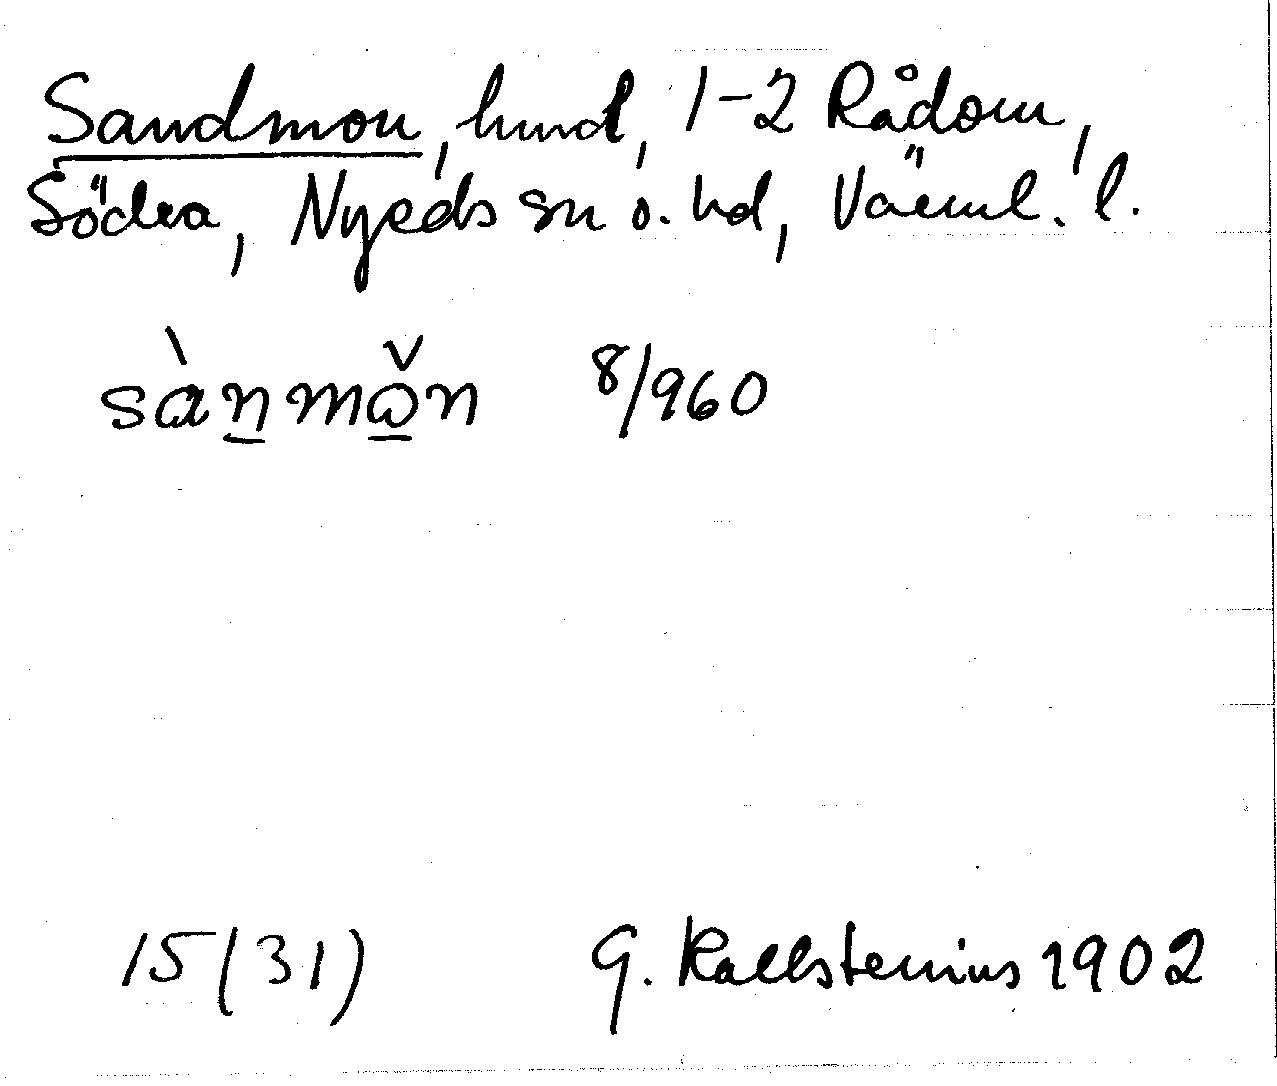 Sandmon, hmd, 1-2 Rådom,
Södra, Nyeds sn o. hd, Värml. l.
sàn̲mǫ̌n 8/960
15(31) G. Kallstenius 1902